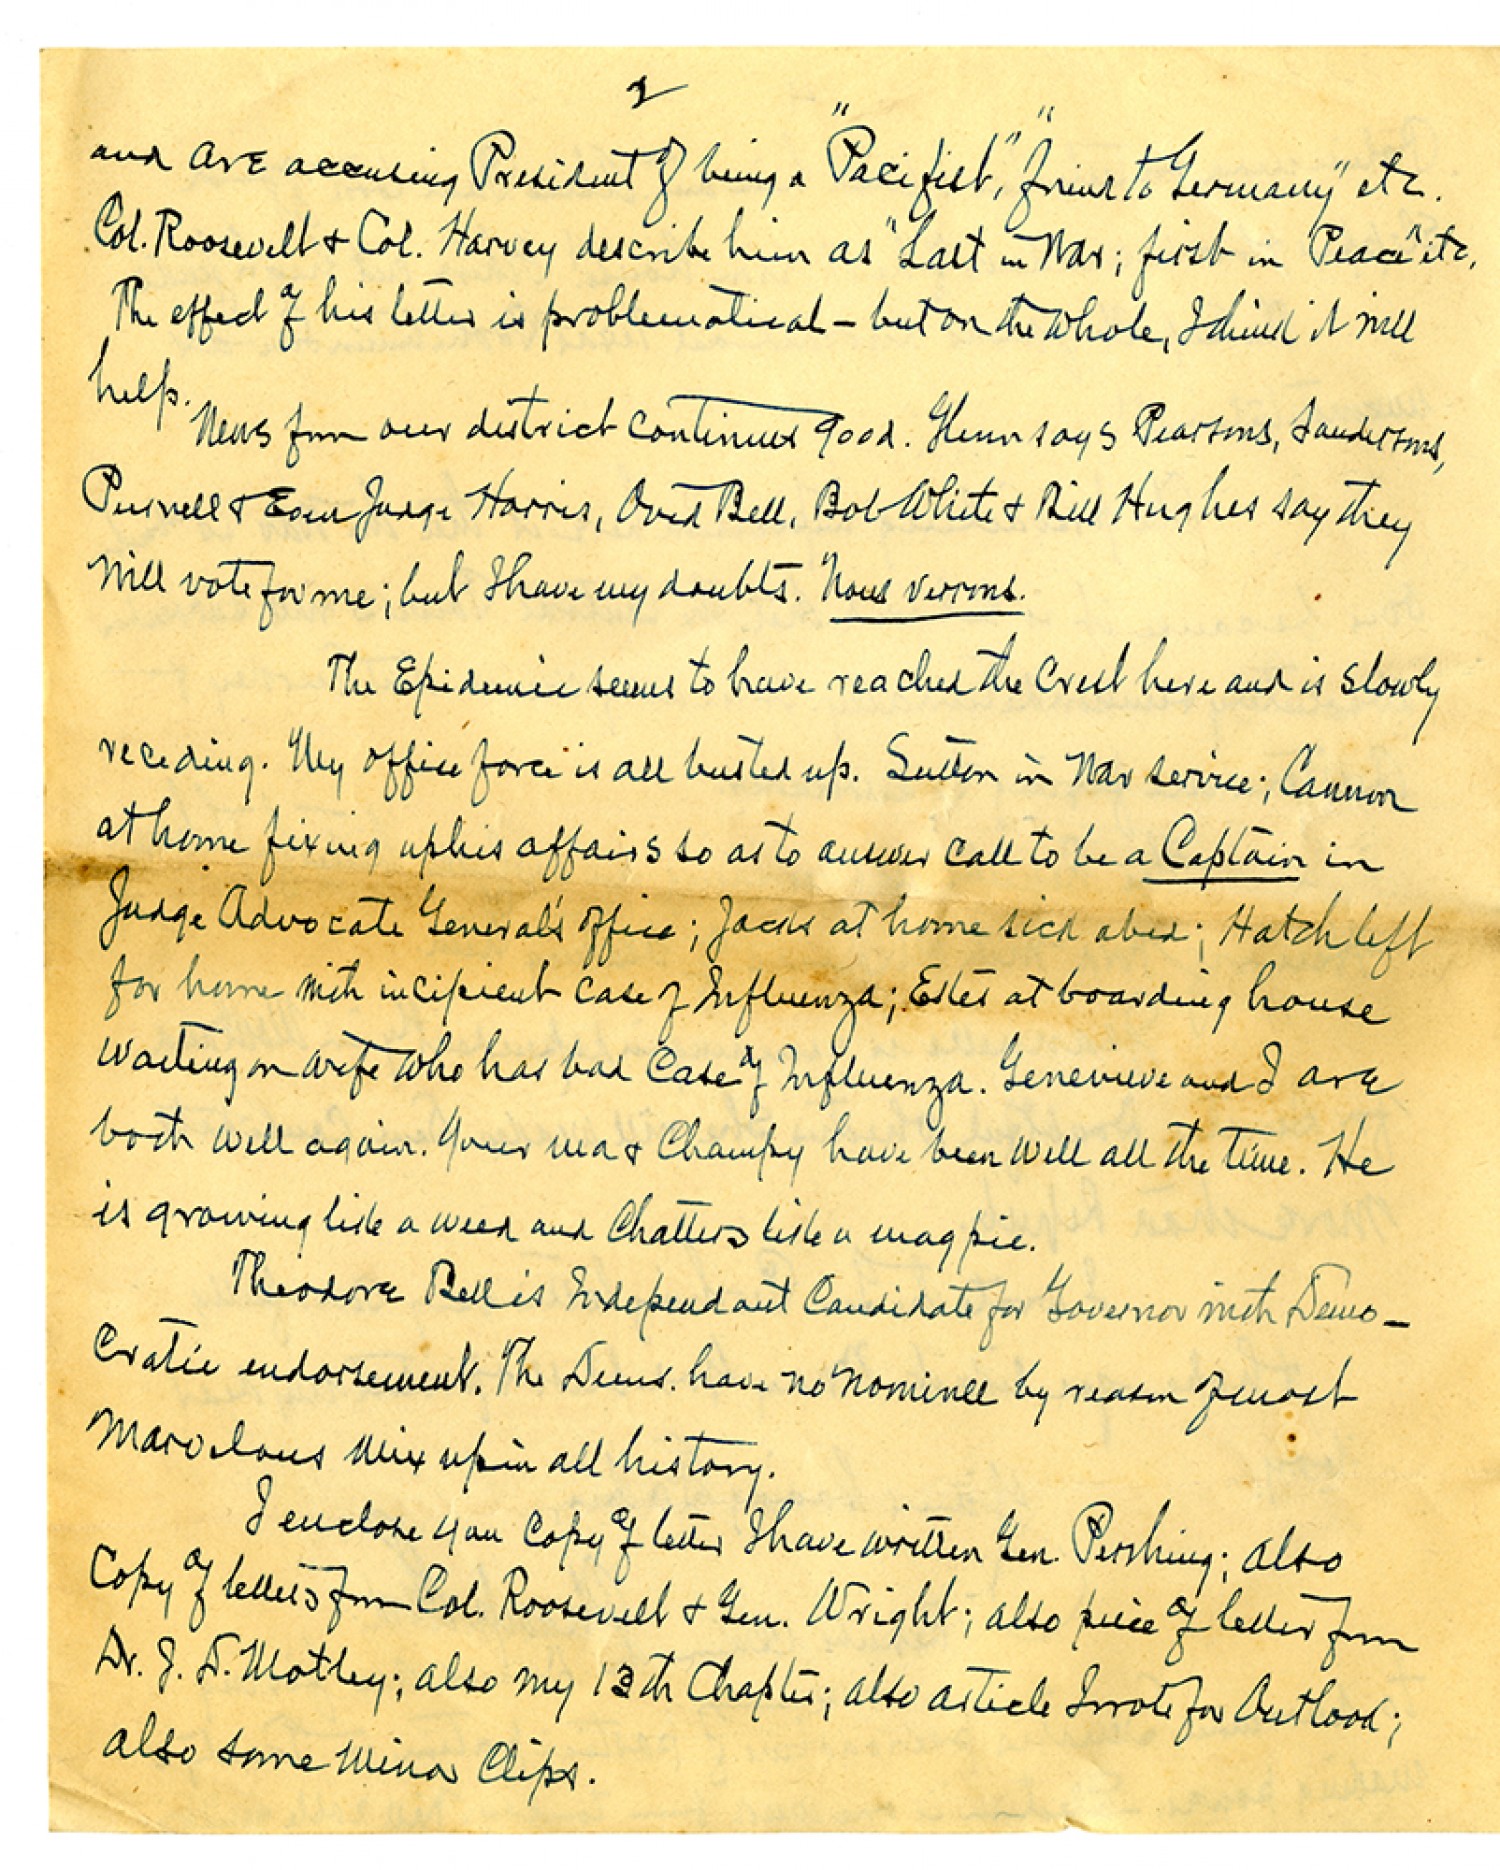 2
and are accusing President of being a "Pacifist," "friend to Germany" etc.
Col. Roosevelt & Col. Harvey describe him as "Last in War; first in Peace" etc.
The effect of his letter is problematical – but on the whole, I think it will
help.
News from our district continues good. Glenn says Pearsons, Sandersons,
Pursell & Even Judge Harris, Ovid Bell, Bob White & Bill Hughes say they
will vote for me; but I have my doubts. Nous verrons.
The Epidemic seems to have reached the Crest here and is slowly
receding. My office force is all busted up. Sutton in War service; Cannon
at home fixing up his affairs so as to answer call to be a Captain in
Judge Advocate General's office; Jacks at home sick abed; Hatch left
for home with incipient case of Influenza; Estes at boarding house
waiting on wife who has bad case of Influenza. Genevieve and I are
both well again. Your ma & Champy have been well all the time. He
is growing like a weed and Chatters like a magpie.
Theodore Bell is Independent Candidate for Governor with Demo-
cratic endorsement. The Dems. have no nominee by reason of most
marvelous mix up in all history.
I enclose you Copy of letter I have written Gen. Pershing; also
Copy of letters from Col. Roosevelt & Gen. Wright; also piece of letter from
Dr. J. D. Motley; also my 13th Chapter; also article I wrote for Outlook;
also some minor Clips.